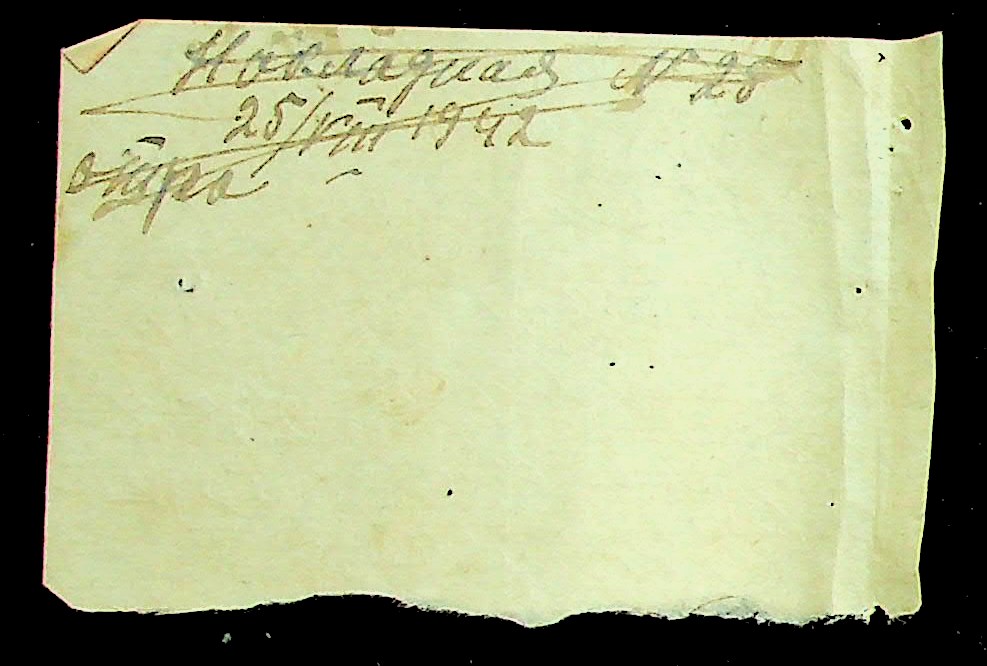 Накладная № 25
25/VIII 1942